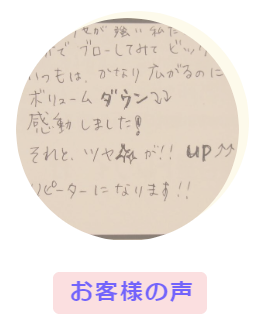 が強い私だ
でブローしてみてビック
いつもは、かなり広がるのに
ボリュームダウン↓↓
感動しました!
それと、ツヤが!! UP↑↑
リピーターになります!!
お客様の声